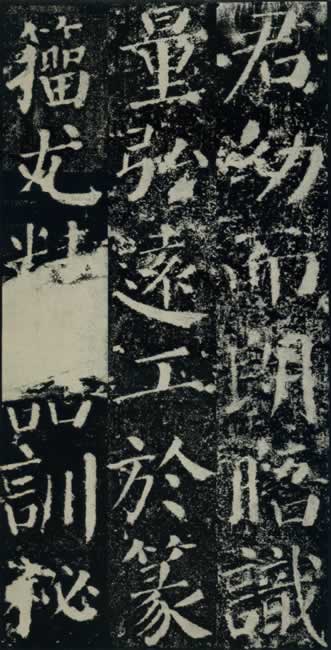 君幼而朗晤識
量弘遠工於篆
籀尤訓秘